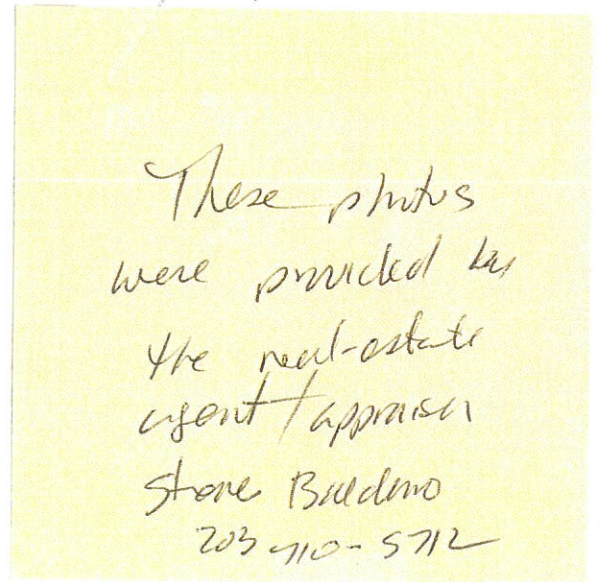 These photos
were provided by
the real-estate
agent/appraiser
Steve
203 710-5712